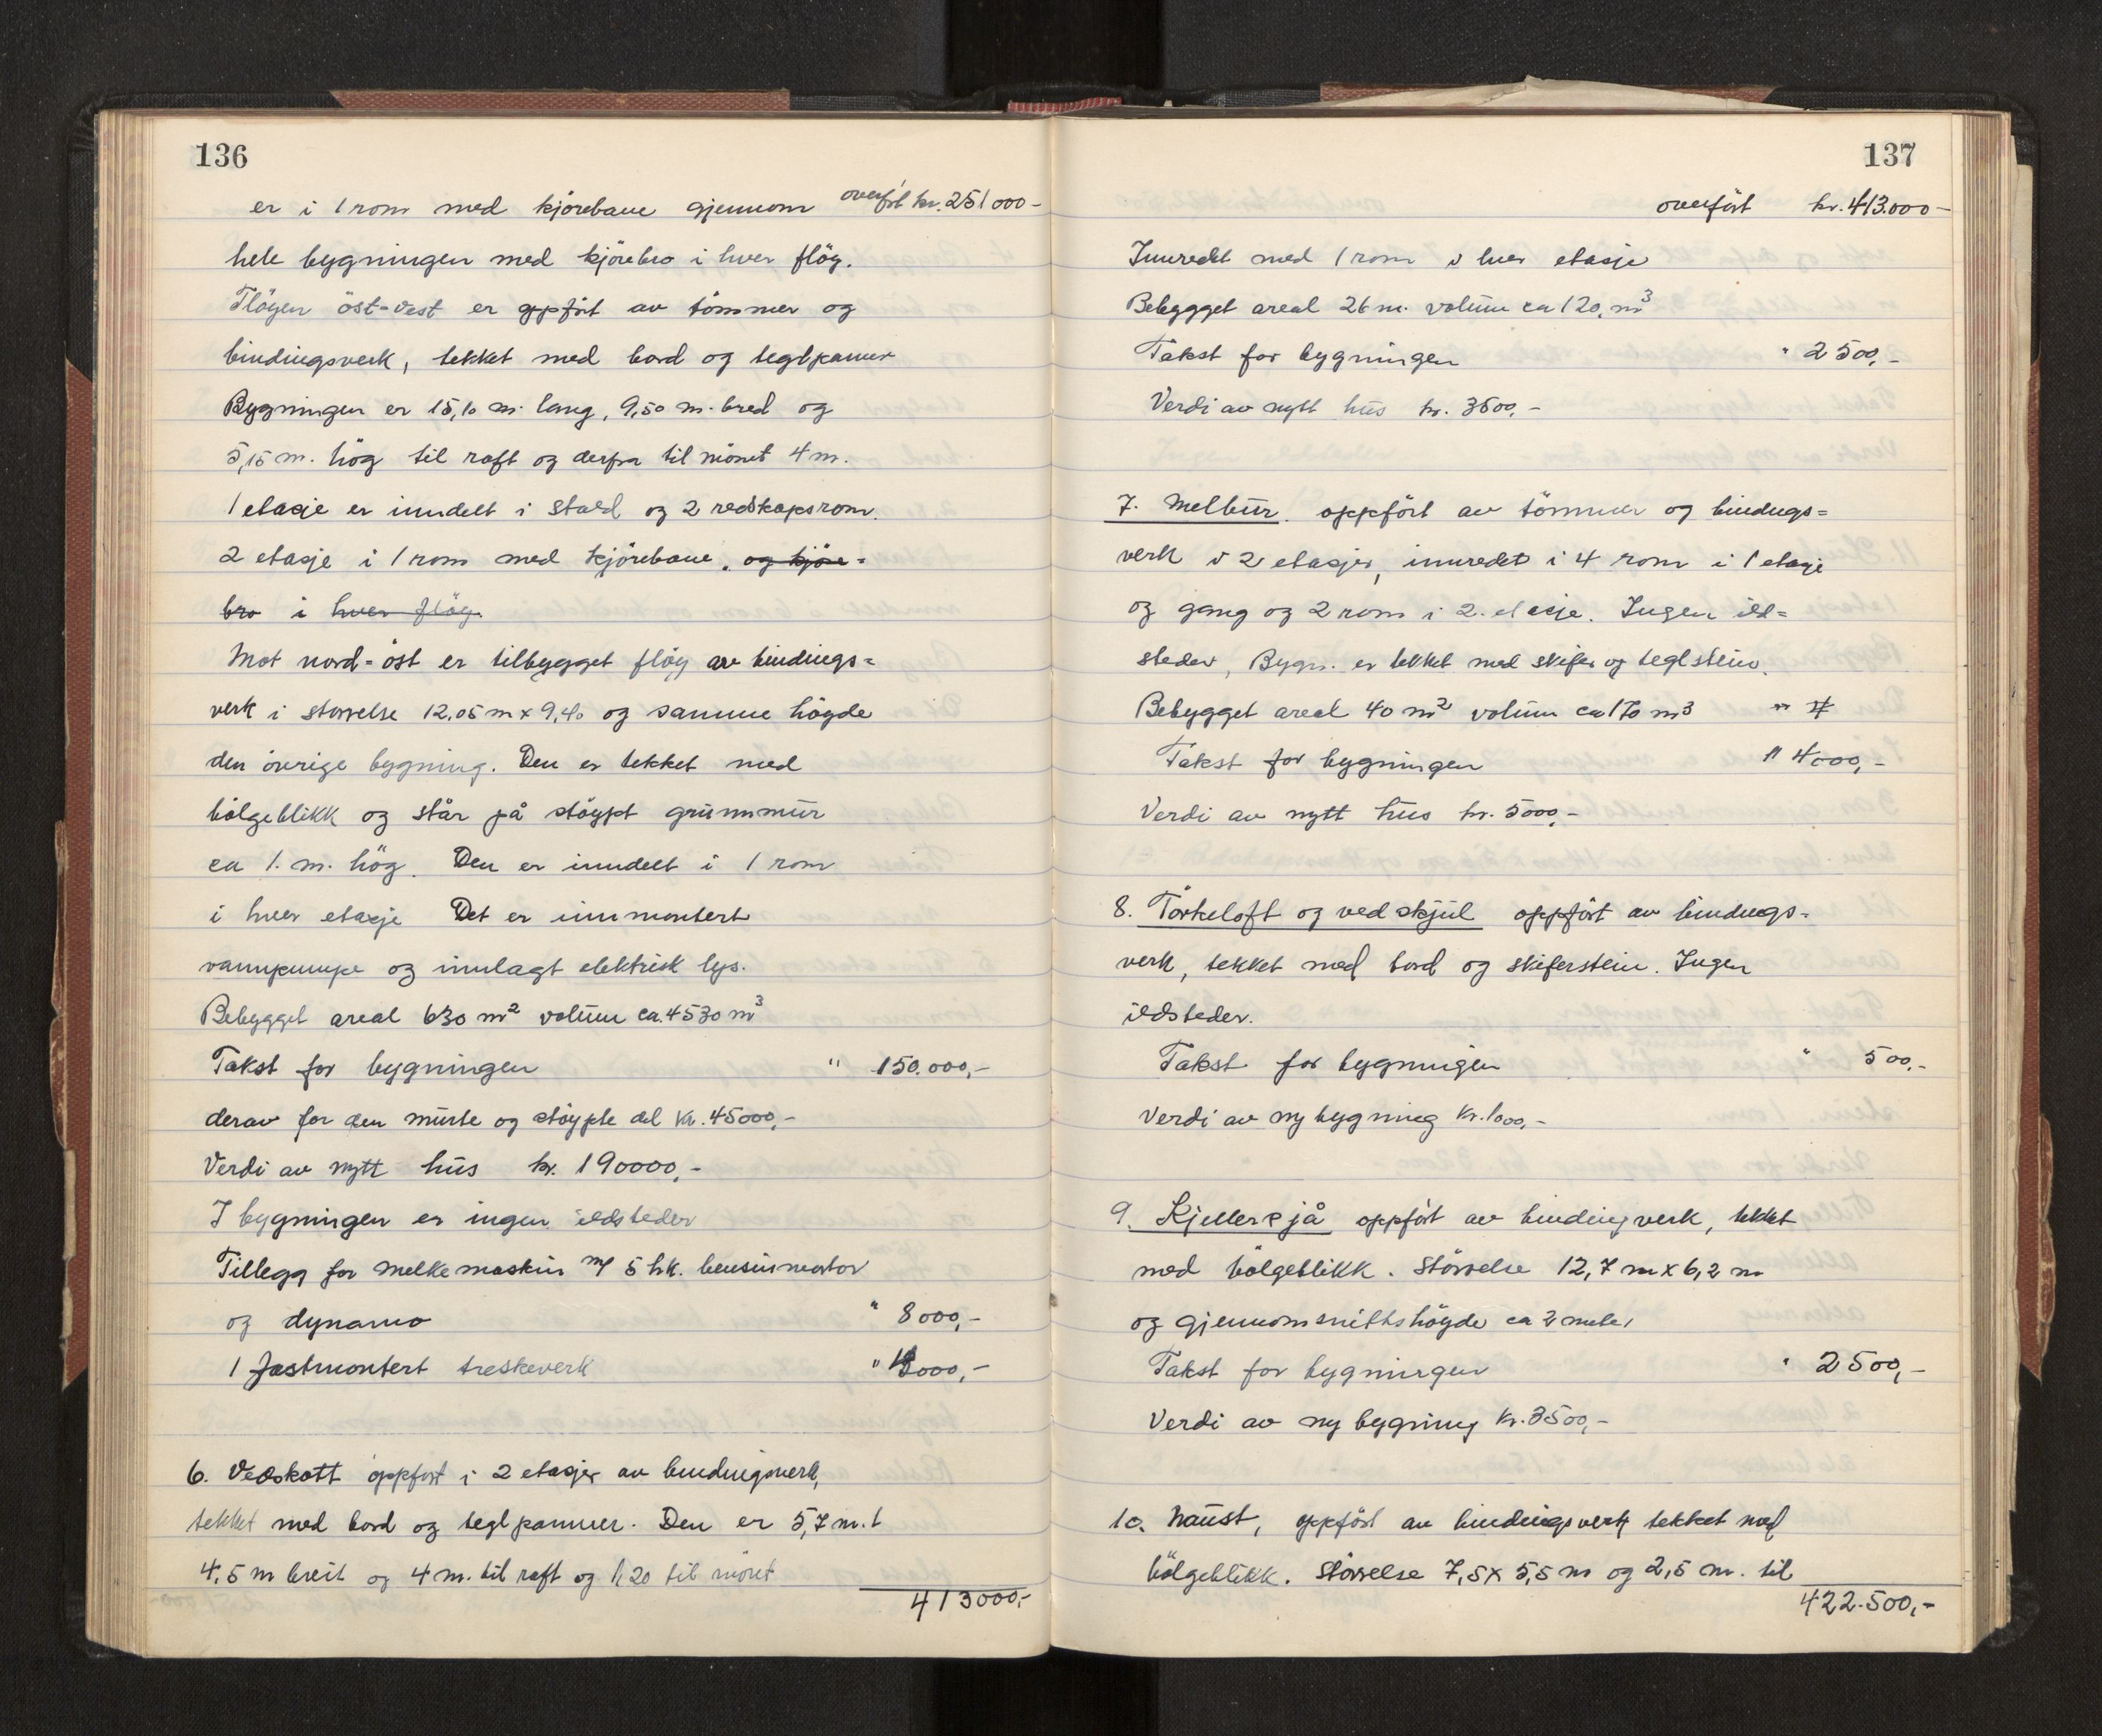 136
er i 1 rom med kjörebane gjennom overfört kr. 251000-
hele bygningen med kjörebro i hver flög.
Flöyen öst-vest er oppfört av tömmer og
bindingsverk, tekket med bord og teglpanner
Bygningen er 15,10 m. lang, 9,50 m. bred og
5,15 m. hög til raft og derfra til mönet 4 m.
1 etasje er inndelt i stald og 2 redskapsrom.
2 etasje i 1 rom med kjörebane. og kjöre=
bro i hver flög.
Mot nord=öst er tilbygget flöy av bindings=
verk i störrelse 12,05 m x 9,40 og samme höyde
den övrige bygning. Den er tekket med
bölgeblikk og står på stöypt grunnmur
ca 1. m. hög. Den er inndelt i 1 rom
i hver etasje Det er innmontert
vannpumpe og innlagt elektrisk lys.
Bebygget areal 630 m² volum ca. 4530 m³
Takst for bygningen " 150.000,-
derav for den murte og stöypte del kr. 45000,-
Verdi av nytt hus kr. 190000,-
I bygningen er ingen ildsteder
Tillegg for melkemaskin m/ 5 hk. bensinmotor
og dynamo " 8000,-
1 fastmontert treskeverk " 4000,-
6. Vedskott oppfört i 2 etasjer av bindingsverk,
tekket med bord og teglpanner. Den er 5,7 m. l
4,5 m breit og 4 m. til raft og 1,20 til mönet
413000,-
137
overfört kr. 413.000-
Innredet med 1 rom i hver etasje
Bebygget areal 26 m. volum ca 120, m³
Takst for bygningen " 2500,-
Verdi av nytt hus kr. 3500,-
7. Melbur. oppfört av tömmer og bindings=
verk i 2 etasjer, innredet i 4 rom i 1 etasje
og gang og 2 rom i 2. etasje. Ingen ild=
steder, Bygn. er tekket med skifer og teglstein.
Bebygget areal 40 m² volum ca 170 m³ " 4
Takst for bygningen " 4000,-
Verdi av nytt hus kr. 5000,-
8. Törkeloft og vedskjul oppfört av bindings=
verk, tekket med bord og skiferstein. Ingen
ildsteder.
Takst for bygningen " 500,-
Verdi av ny bygning kr. 1000,-
9. Kjellersjå oppfört av bindingverk, tekket
med bölgeblikk. Störrelse 12,7 m x 6,2 m
og gjennomsnittshöyde ca 2 meter
Takst for bygningen " 2500,-
Verdi av ny bygning kr. 3500,-
10. Naust, oppfört av bindingsverk tekket med
bölgeblikk. Störrelse 7,5 x 5,5 m og 2,5 m. til
422.500,-